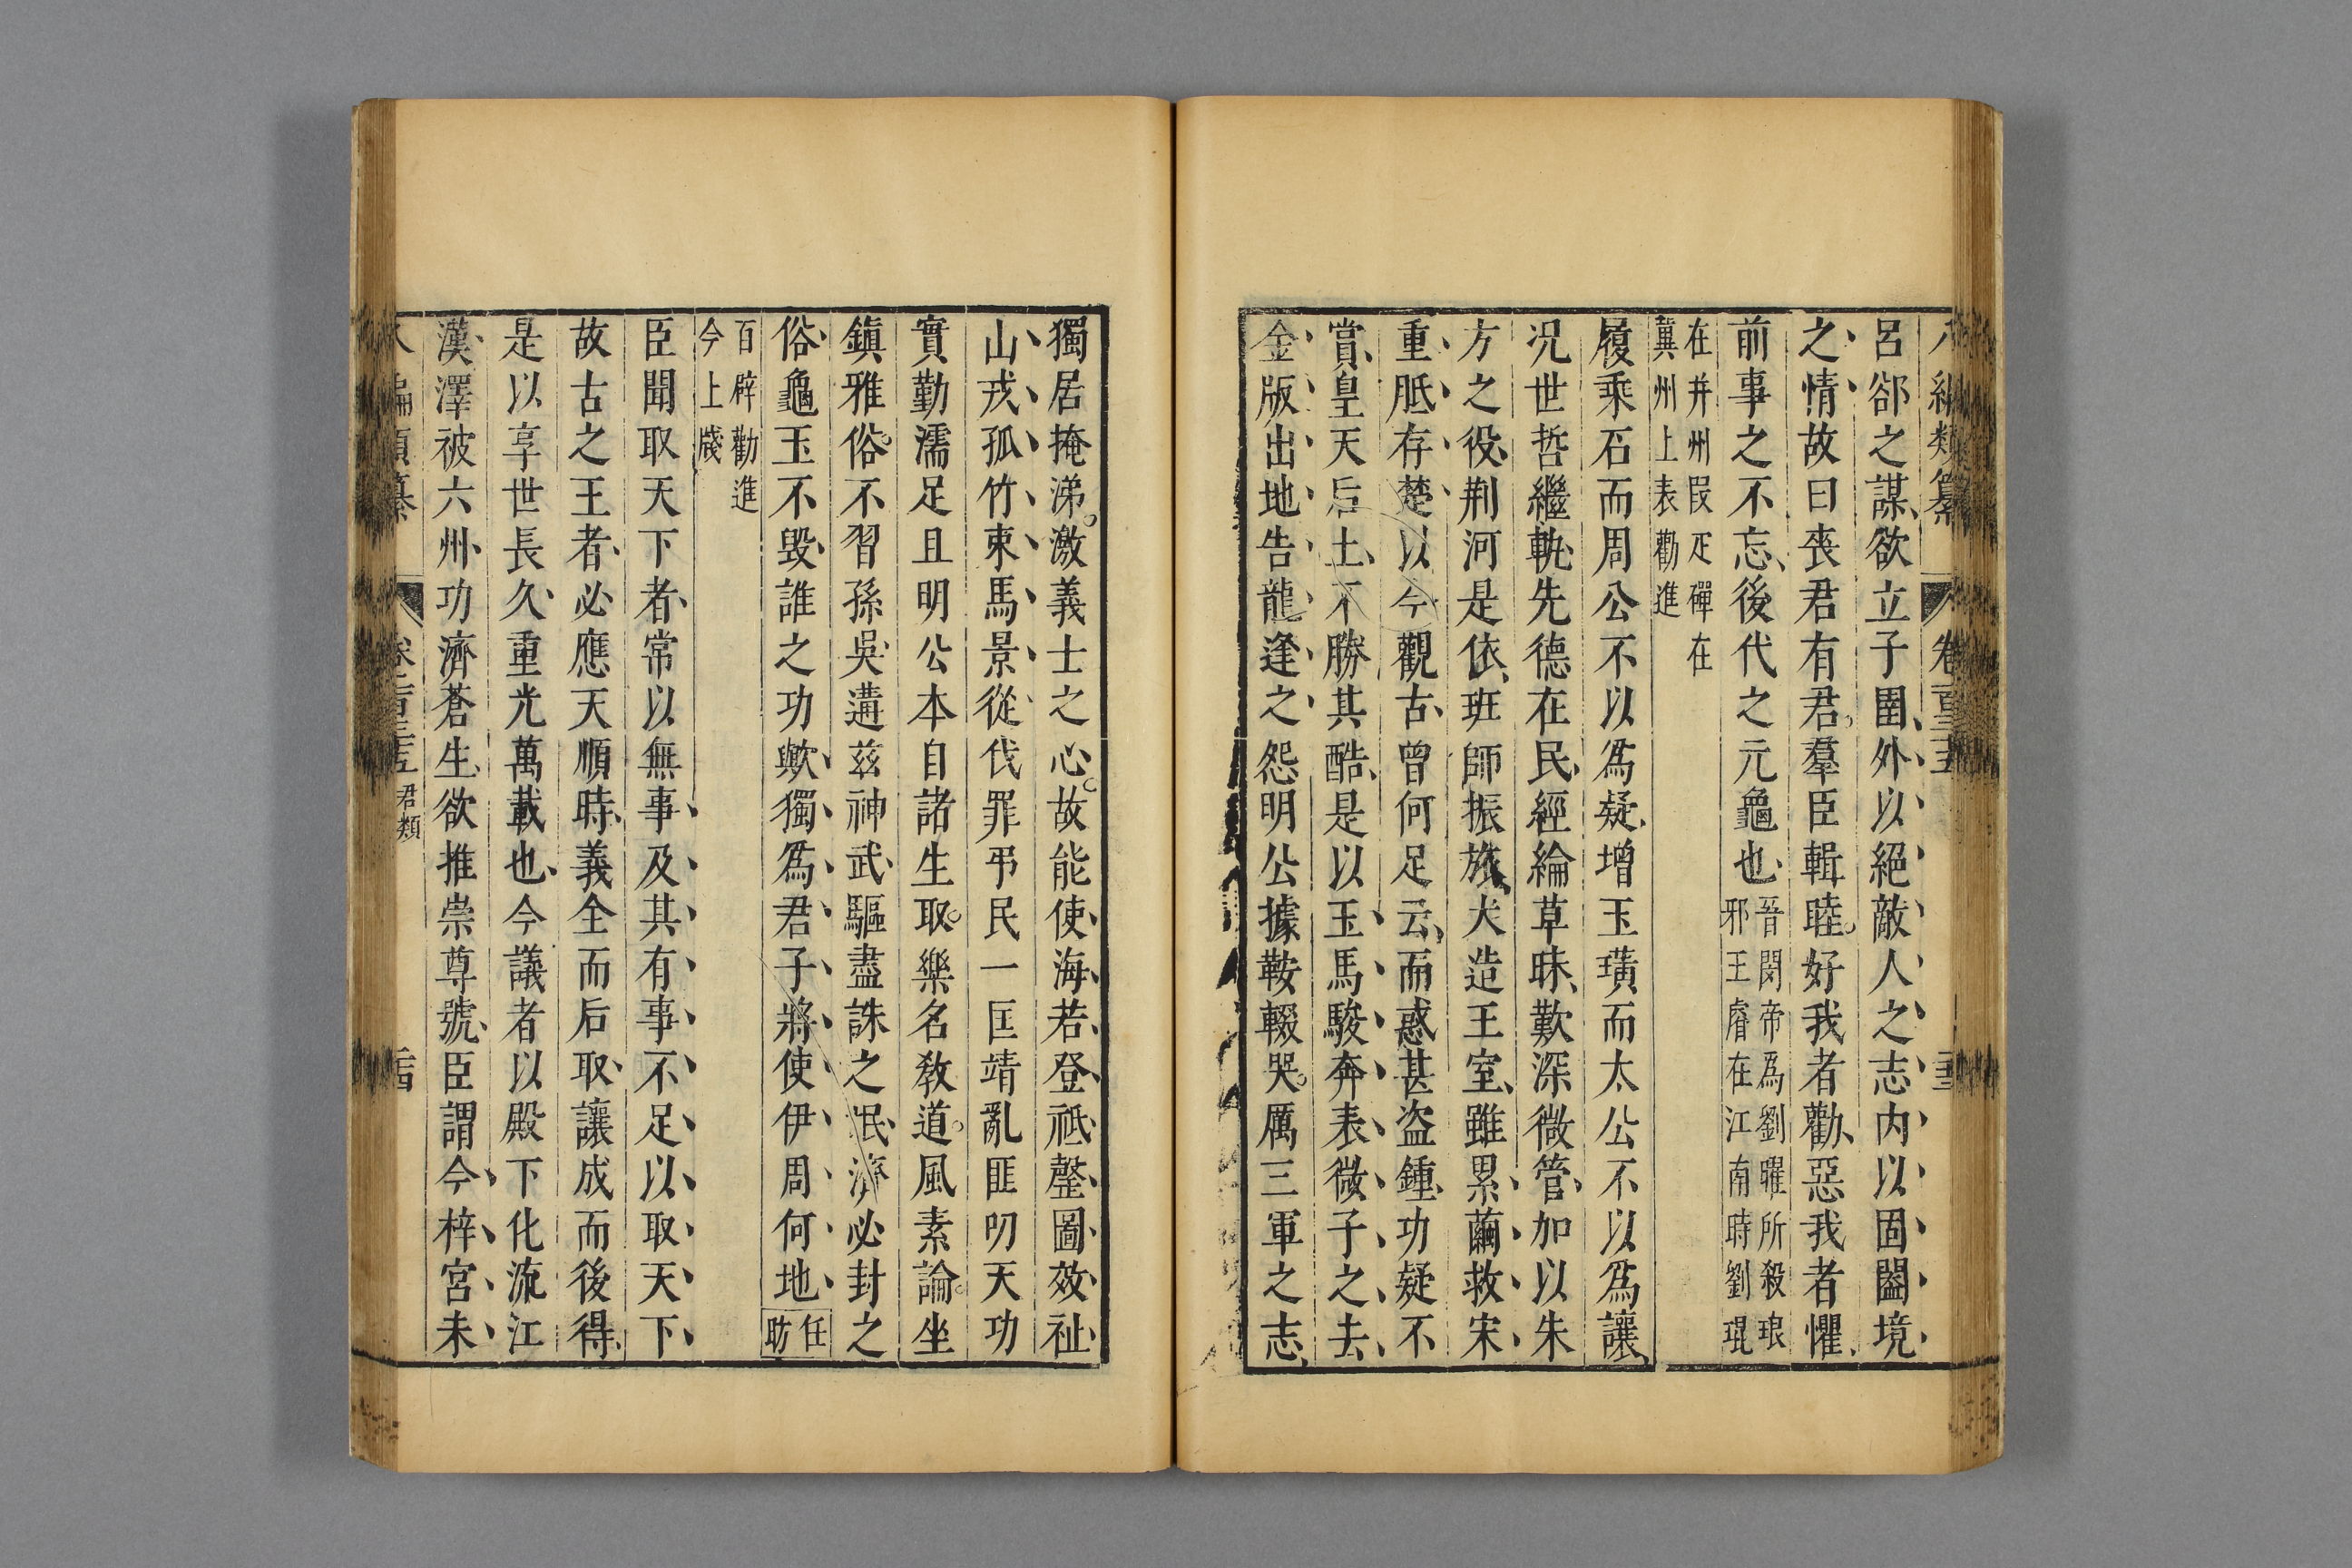 呂郤之謀欲立子圉外以絕敵人之志内以固闔境
之情故曰喪君有君羣臣輯睦好我者勸惡我者懼
前事之不忘後代之元龜也
晉閔帝爲劉曜所殺琅
邪王睿在江南時劉琨
在并州叚疋磾在
冀州上表勸進
履乘石而周公不以爲疑增玉璜而太公不以爲讓
况世哲繼軌先德在民經綸草昧歎深微管加以朱
方之役荆河是依班師振旅大造王室雖累繭救宋
重胝存楚以今觀古曾何足云而惑甚盗鍾功疑不
賞皇天后土不勝其酷是以玉馬駿奔表微子之去
金版出地告龍逢之怨明公據鞍輟哭厲三軍之志
獨居掩涕激義士之心故能使海若登祗罄圖效祉
山戎孤竹束馬景從伐罪弔民一匡靖亂匪叨天功
實勤濡足且明公本自諸生取樂名教道風素論坐
鎮雅俗不習孫吳遘兹神武驅盡誅之氓濟必封之
俗龜玉不毁誰之功歟獨爲君子將使伊周何地
任
昉
百辟勸進
今上牋
臣聞取天下者常以無事及其有事不足以取天下
故古之王者必應天順時義全而后取讓成而後得
是以享世長久重光萬載也今議者以殿下化流江
漢澤被六州功濟蒼生欲推崇尊號臣謂今梓宮未
君類